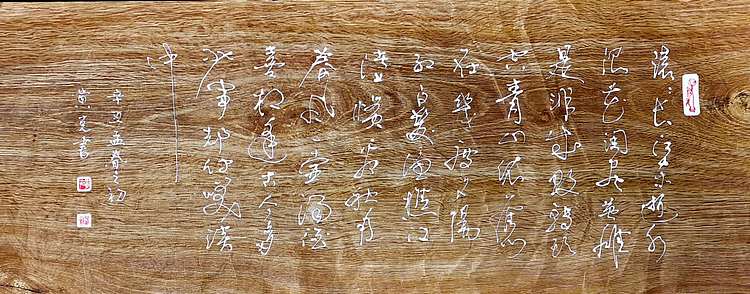 滚〻長江東逝水
浪花淘盡英雄
是非成敗轉頭
空青山依舊
在幾度夕陽
紅白髮漁樵江
渚上慣看秋月
春風一壺濁酒
喜相逢古今多
少事都付笑談
中
辛丑孟春之初
書